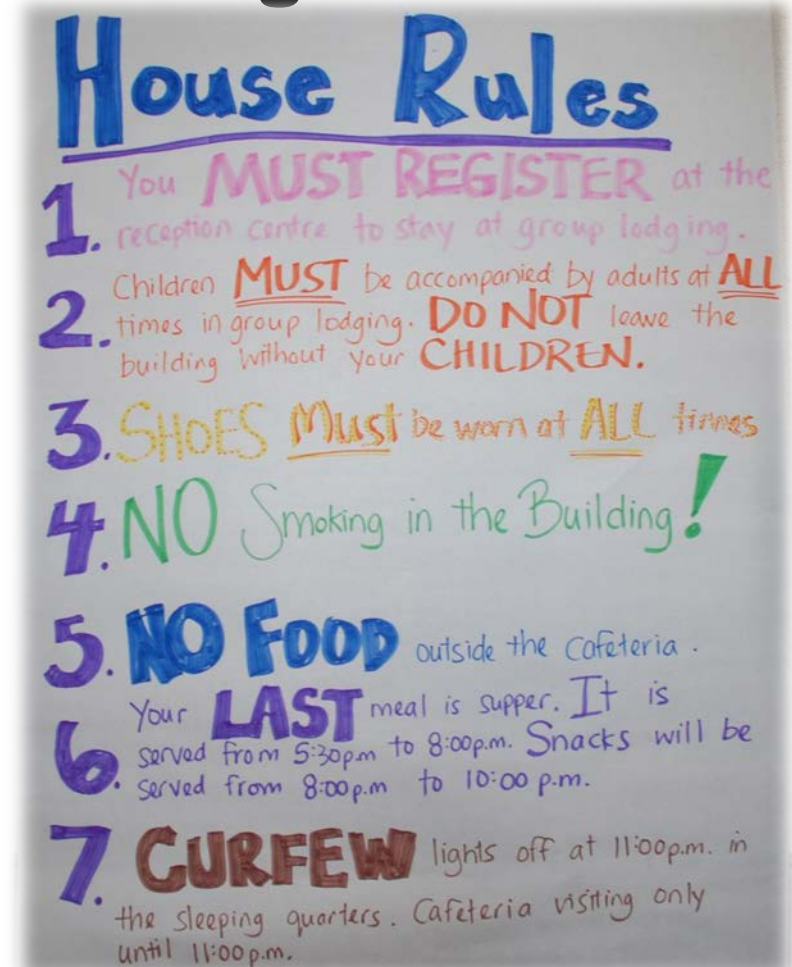 House Rules
1. You MUST REGISTER at the
reception centre to stay at group lodging.
2. Children MUST be accompanied by adults at ALL
times in group lodging. DO NOT leave the
building without your CHILDREN.
3. SHOES Must be worn at ALL times
4. NO Smoking in the Building!
5. NO FOOD outside the cafeteria.
6. Your LAST meal is supper. It is
served from 5:30p.m to 8:00p.m. Snacks will be
served from 8:00p.m to 10:00 p.m.
7. CURFEW lights off at 11:00p.m. in
the sleeping quarters. Cafeteria visiting only
until 11:00p.m.